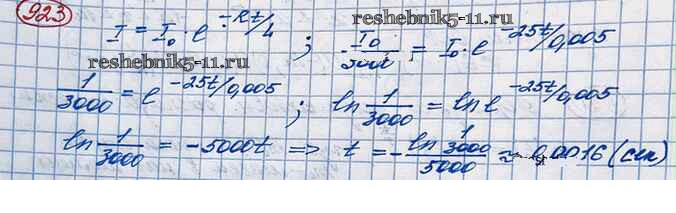 923
I = I₀ · e^(-Rt/4) ; I₀/3000 = I₀ · e^(-25t/0,005)
reshebnik5-11.ru
reshebnik5-11.ru
1/3000 = e^(-25t/0,005) ; ln 1/3000 = ln e^(-25t/0,005)
ln 1/3000 = -5000t => t = - ln 1/3000 / 5000 ≈ 0,0016 (сек)